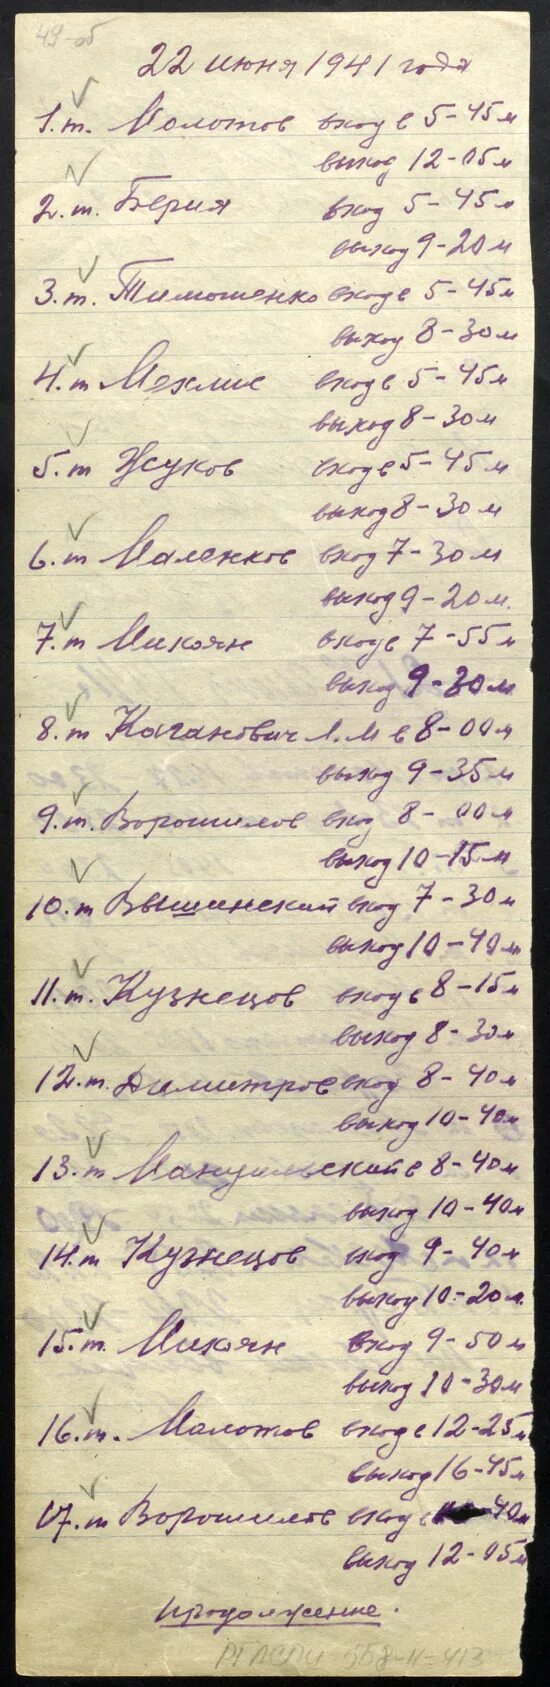 49-об
22 июня 1941 года
1. т. Молотов вход в 5-45м
выход 12-05м
2. т. Берия вход 5-45м
выход 9-20м
3. т. Тимошенко вход в 5-45м
выход 8-30м
4. т Мехлис вход в 5-45м
выход 8-30м
5. т Жуков вход в 5-45м
выход 8-30м
6. т Маленков вход 7-30м
выход 9-20м.
7. т Микоян вход в 7-55м
выход 9-30м
8. т Каганович Л.М в 8-00м
выход 9-35м
9. т. Ворошилов вход 8-00м
выход 10-15м
10. т Вышинский вход 7-30м
выход 10-40м
11. т. Кузнецов вход в 8-15м
выход 8-30м
12. т. Димитров вход 8-40м
выход 10-40м
13. т Мануильский в 8-40м
выход 10-40м
14. т Кузнецов вход 9-40м
выход 10-20м.
15. т. Микоян вход 9-50м
выход 10-30м
16. т. Молотов вход в 12-25м
выход 16-45м
17. т Ворошилов вход в 40м
выход 12-05м
продолжение.
РГАСПИ 558-11-413